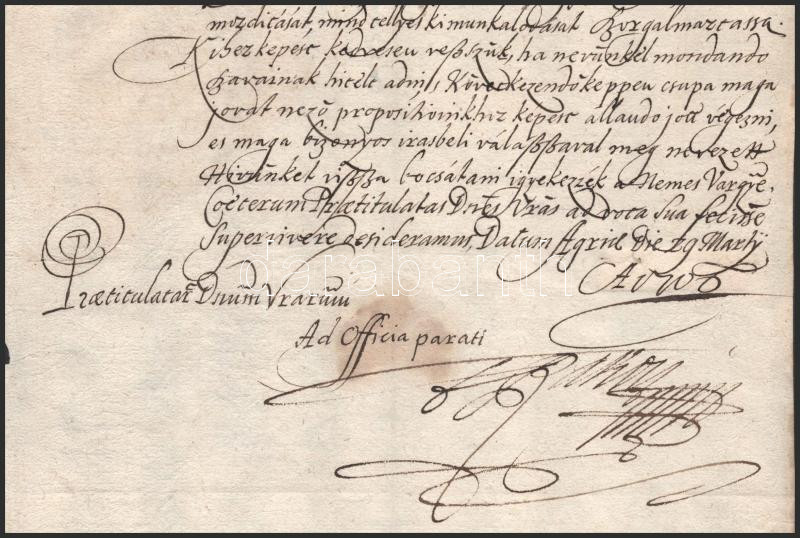 mozdicását, mind tellyes ki munkalodását Szorgalmaztassa.
Kihez képest kedvesen vesszük, ha nevünkel mondando
Szavainak hitelt adni, Következendőkeppen csupa maga
jovát nezö propositioinkhiz képest állando jott végezni,
es maga bizonyos irasbeli válasszaval meg nevezett
Hivünket vissza bocsátani igyekezzék a Nemes Vargye.
Coeterum Praetitulatas Dnes Vras ad vota sua
Supervivere desideramus, Datum Agriae Die 29 Martij
Praetitulatar Dnum Vrarum
Ad Officia parati
darabanth